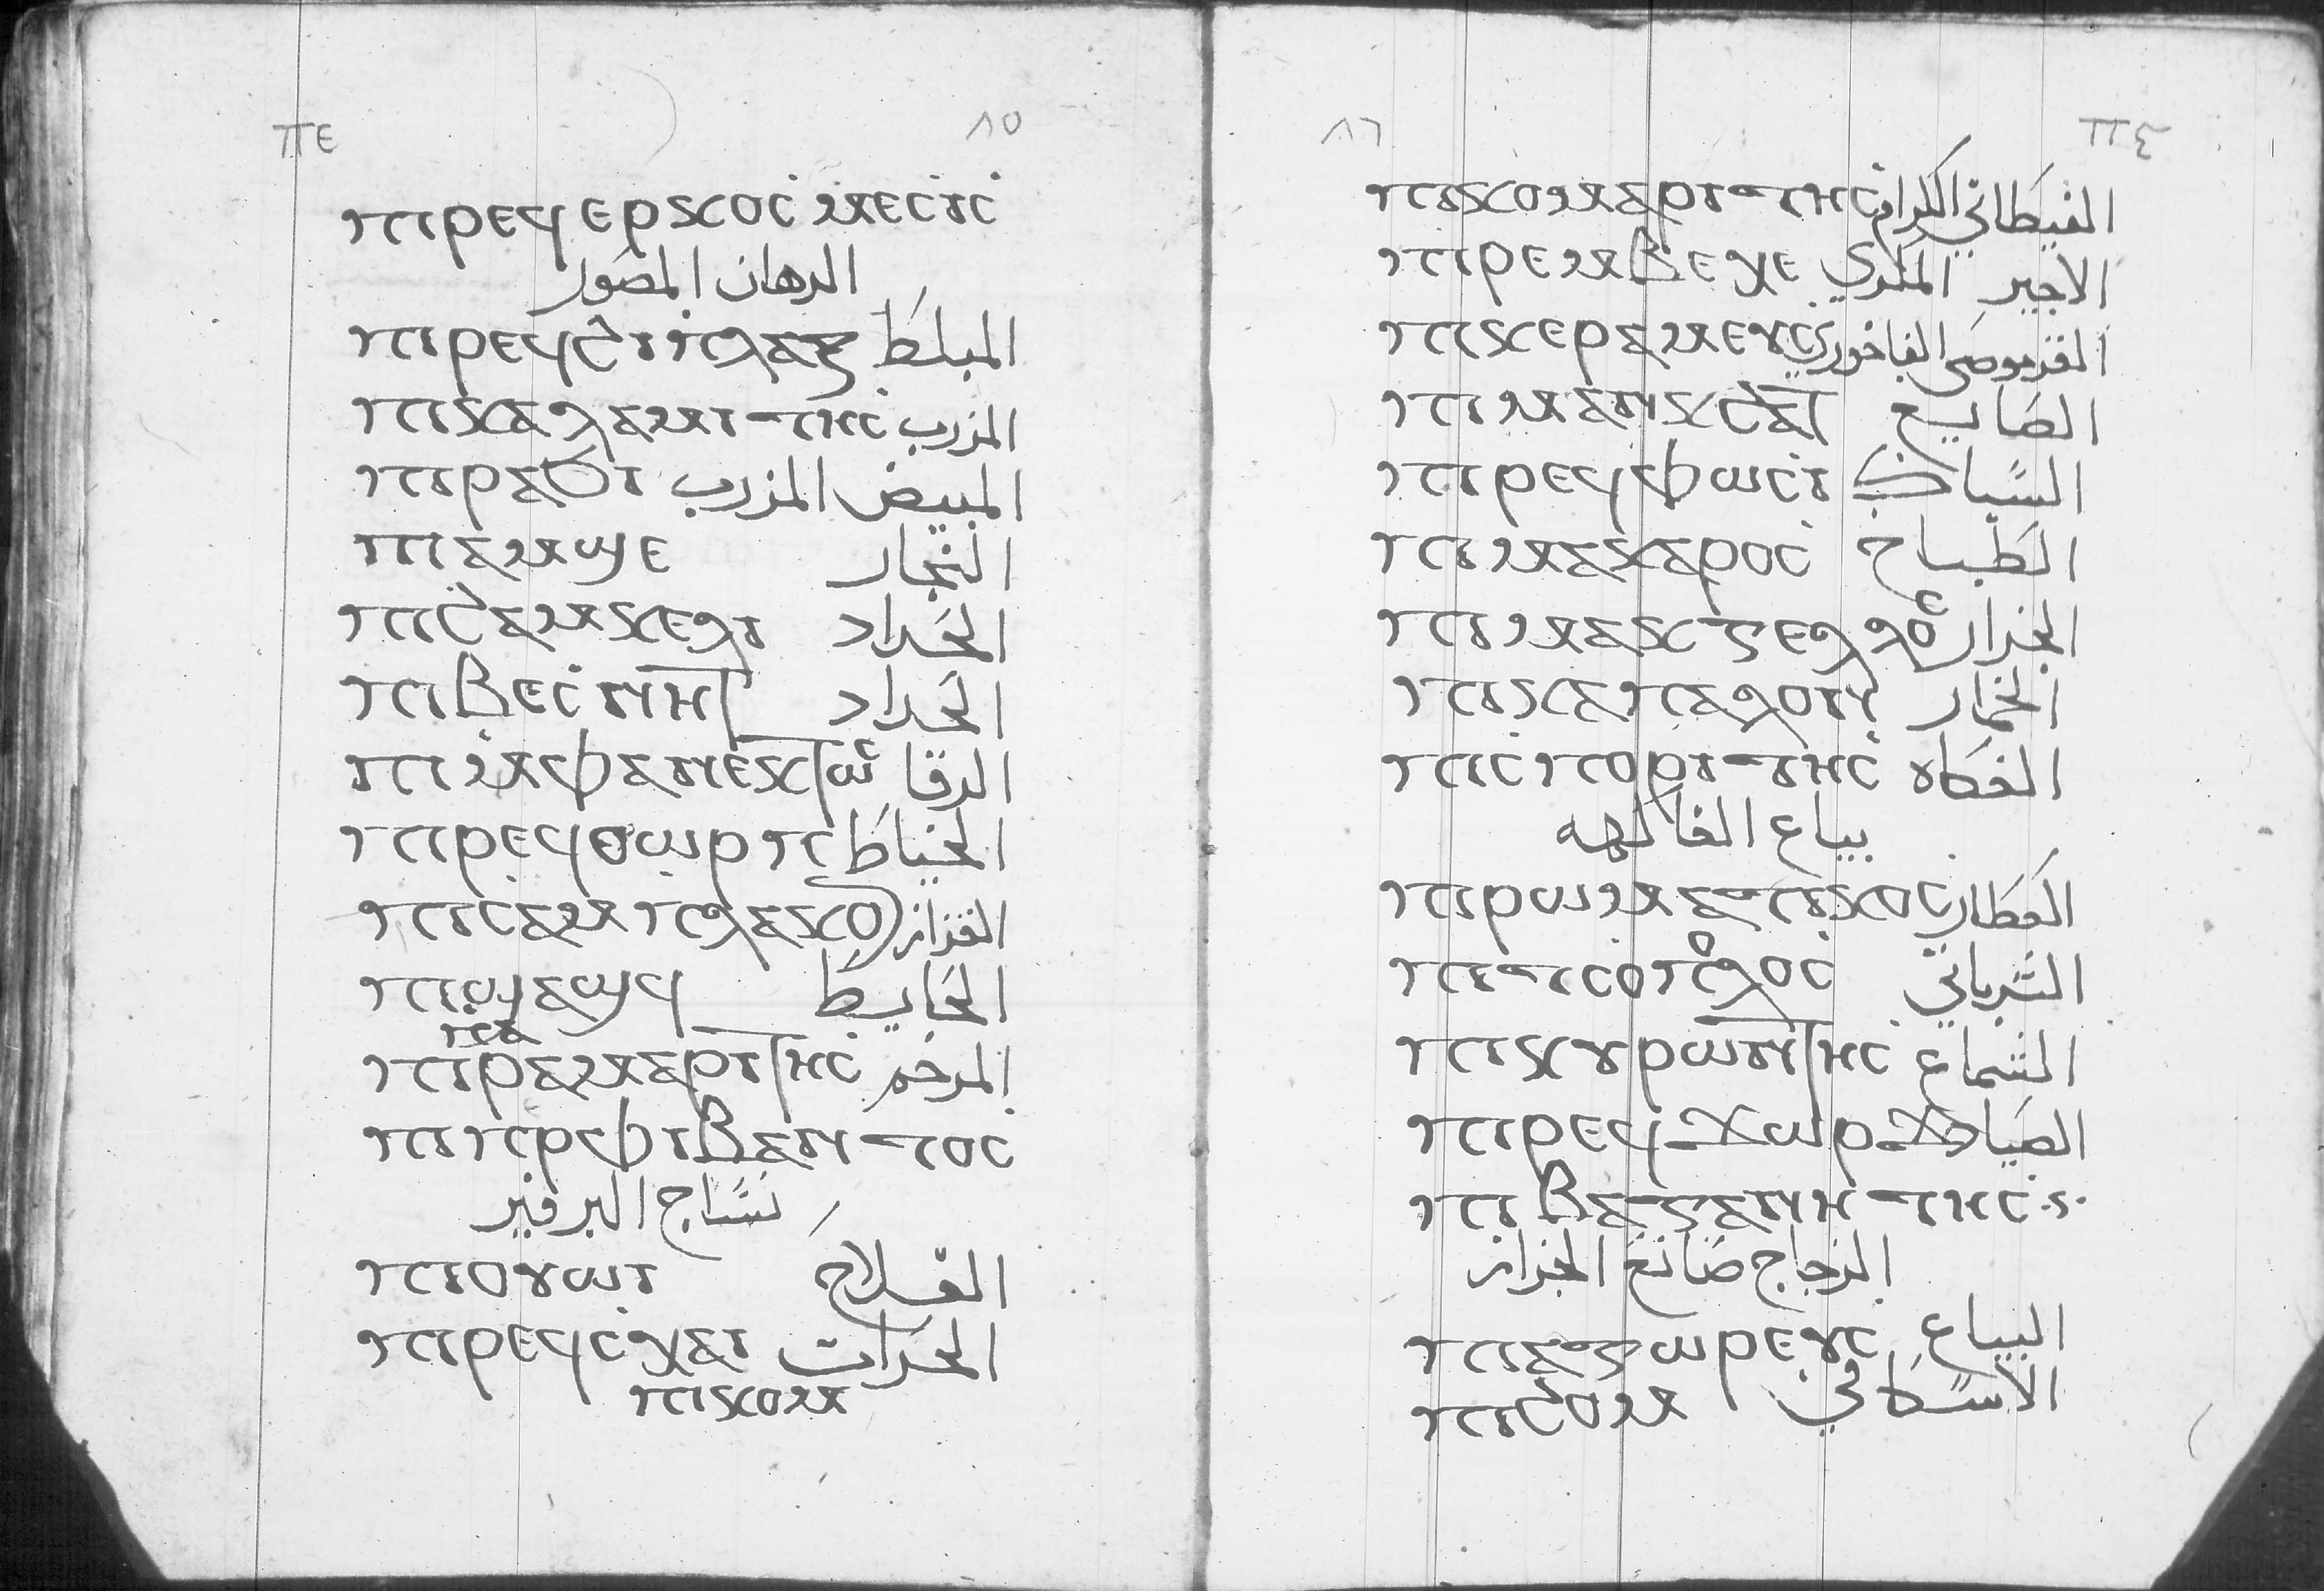 ⲡⲉ ٨٥
ⲡⲓⲣⲉϥⲉⲣⲕⲟⲥⲙⲉⲥⲓⲥ
الدهان المصور
ⲡⲓⲣⲉϥϭⲓⲡⲗⲁⲝ المبلط
ⲡⲓⲕⲁⲗⲁⲙⲓⲧⲏⲥ المزرب
ⲡⲓⲣⲁϧⲓ المبيض المزرب
ⲡⲓⲁⲙϣⲉ النجار
ⲡⲓϭⲁⲙⲕⲉⲗⲓ الحداد
ⲡⲓⲃⲉⲥⲛⲏⲧ الحداد
ⲡⲓⲙⲫⲁⲛⲉⲕⲧⲱⲥ الرفا
ⲡⲓⲣⲉϥⲑⲱⲣⲡ الخياط
ⲡⲓⲥⲁⲙⲡⲗⲁⲕⲟ القزاز
ⲡⲓϣⲁϣϥ الخايط
ⲡⲓⲣⲁⲙⲁⲣⲓⲧⲏⲥ المرخم
ⲡⲓⲡⲣⲫⲓⲃⲁⲛⲧⲟⲥ
نساج البرفير
ⲡⲓⲟⲩⲱⲓ الفلاح
ⲡⲓⲣⲉϥⲥⲭⲁⲓ الحرات
ⲡⲓⲕⲟⲙ
٨٦ ⲡⲋ
ⲡⲓⲕⲟⲙⲁⲣⲓⲧⲏⲥ الغيطاني الكرام
ⲡⲓⲣⲉⲙⲃⲉⲭⲉ الاجير المكري
ⲡⲓⲕⲉⲣⲁⲙⲉⲩⲥ القرموصى الفاخوري
ⲡⲓⲙⲁⲛⲕϭⲁⲧ الصايغ
ⲡⲓⲣⲉϥⲫⲱⲥⲓ السباك
ⲡⲓⲙⲁⲅⲁⲣⲟⲥ الطباخ
ⲡⲓⲙⲁⲕⲉⲗⲗⲟⲥ الجزار
ⲡⲓⲕⲁⲡⲁⲗⲟⲛ الخمار
ⲡⲓⲥⲡⲟⲣⲓⲧⲏⲥ الفكاه
بياع الفاكهه
ⲡⲓⲣⲱⲙⲁⲧⲓⲕⲟⲥ العطار
ⲡⲓⲧⲟⲡⲗⲟⲥ الشرباتي
ⲡⲓⲕⲩⲣⲱⲛⲧⲏⲥ الشماع
ⲡⲓⲣⲉϥϫⲱⲣϫ الصياد
ⲡⲓⲃⲁⲍⲁⲛⲏⲧⲏⲥ
الزجاج صانع الجراز
ⲡⲓⲁⲅⲱⲣⲉⲩⲥ البياع
ⲡⲓϭⲟⲙ الاسكافي